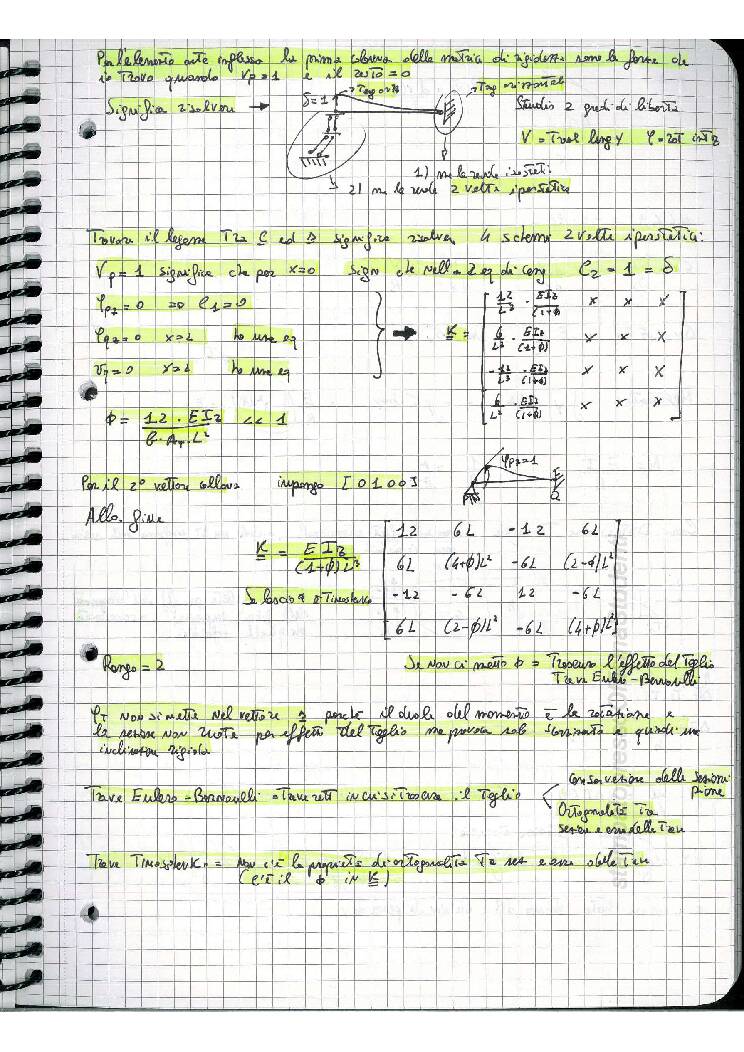 Per l'elemento inflessa la prima colonna della matrice di rigidezza sono le forze che
io trovo quando Vp=1 e il resto=0
Significa risolvere → δ=1
Studio 2 gradi di libertà
V = Trasl lung Y φ = rot int z
1) me la rende isost.
2) me la rende 2 volte iperstatica
Trovare il legame Tra C ed s significa risolvere 4 schemi 2 volte iperstatici:
Vp = 1 significa che per x=0 Sign che nella 2 eq di cong C2 = 1 = δ
φpz = 0 => C1 = 0
φqz = 0 x=L ho una eq
vq = 0 x=L ho una eq
K = [ 12/L³ · EIz/(1+φ) x x x
6/L² · EIz/(1+φ) x x x
-12/L³ · EIz/(1+φ) x x x
6/L² · EIz/(1+φ) x x x ]
φ = 12 · EIz / G · AT · L² << 1
Per il 2° vettore colonna impongo [0 1 0 0] φpz=1
Alla fine
K = EIz / (1+φ)L³ [ 12 6L -12 6L
6L (4+φ)L² -6L (2-φ)L²
-12 -6L 12 -6L
6L (2-φ)L² -6L (4+φ)L² ]
Se lascio φ è Timoshenko
Rango = 2
Se non ci metto φ = Trascuro l'effetto del Taglio
Trave Eulero-Bernoulli
φT non si mette nel vettore s perché il duale del momento è la rotazione e
la sezione non ruota per effetto del Taglio ma provoca solo scorrimento e quindi una
inclinazione rigida
Trave Eulero-Bernoulli = Trave reti in cui si trascura il Taglio
Conservazione delle sezioni
piane
Ortogonalità Tra
sezione e asse della Trave
Trave Timoshenko = non c'è la proprietà di ortogonalità Tra sez e asse della Trave
(c'è il φ in K)